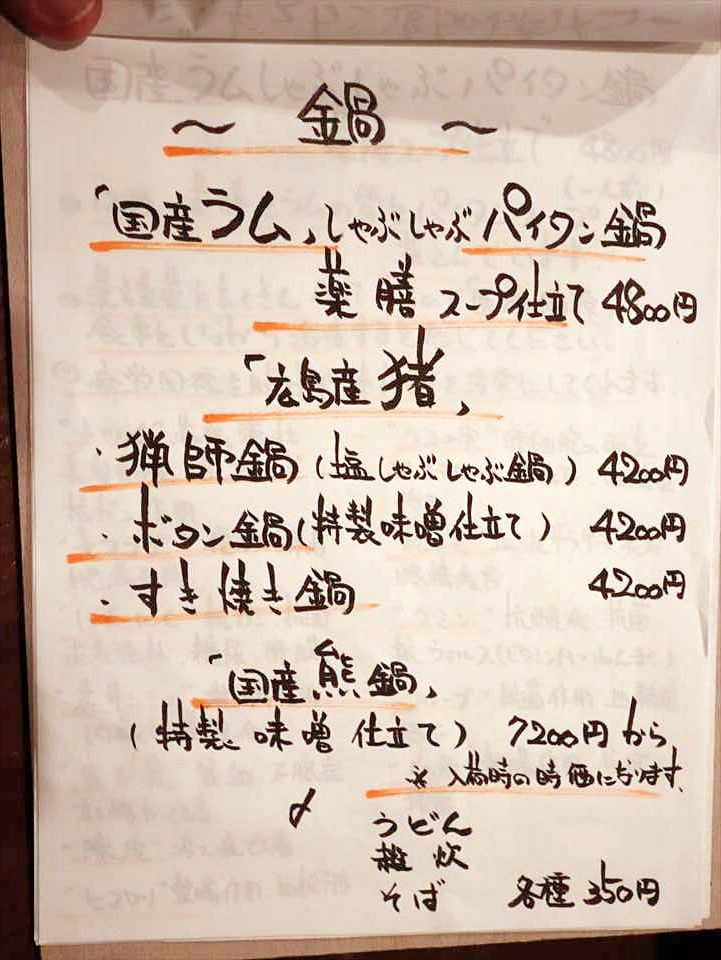 ～ 鍋 ～
「国産ラム」しゃぶしゃぶパイタン鍋
薬膳スープ仕立て 4800円
「広島産猪」
・猟師鍋(塩しゃぶしゃぶ鍋) 4200円
・ボタン鍋(特製味噌仕立て) 4200円
・すき焼き鍋 4200円
「国産熊鍋」
(特製味噌仕立て) 7200円から
※入荷時の時価になります。
〆 うどん
雑炊
そば 各種350円